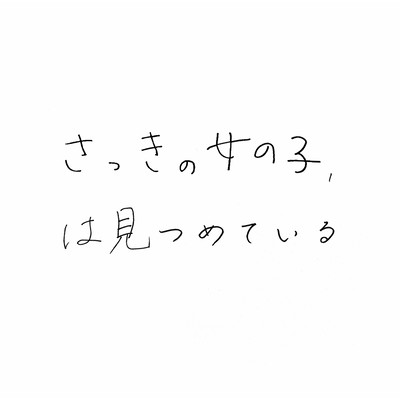 さっきの女の子,
は見つめている